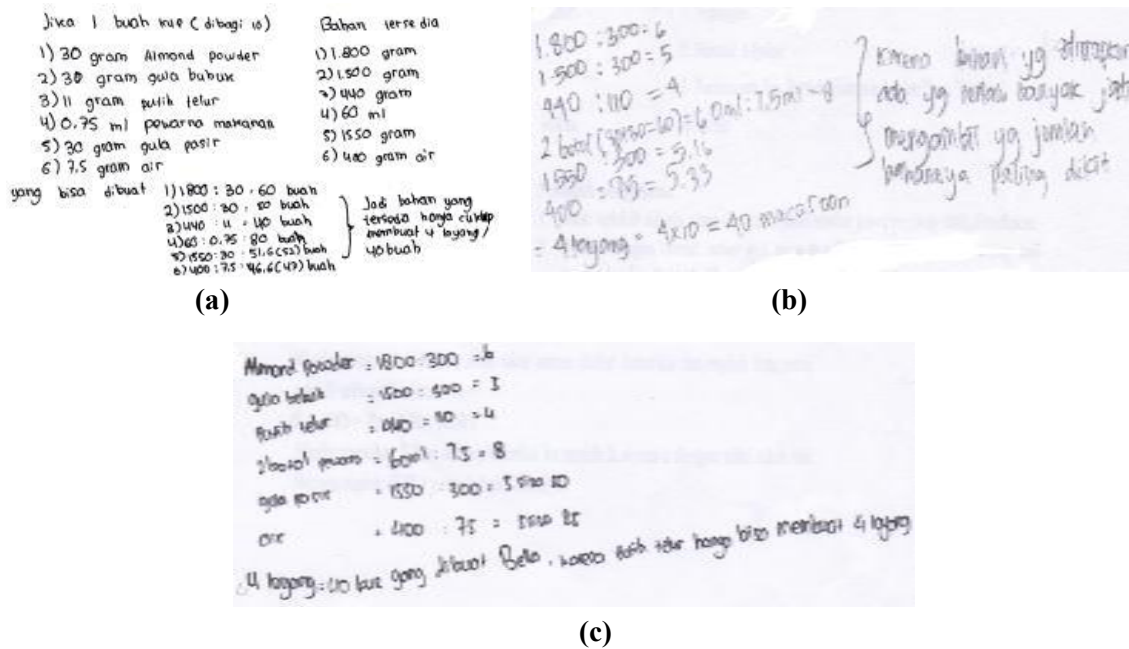 Jika 1 buah kue (dibagi 10)
1) 30 gram Almond powder
2) 30 gram gula bubuk
3) 11 gram putih telur
4) 0.75 ml pewarna makanan
5) 30 gram gula pasir
6) 7.5 gram air
Bahan tersedia
1) 1.800 gram
2) 1.500 gram
3) 440 gram
4) 60 ml
5) 1550 gram
6) 400 gram air
yang bisa dibuat 1) 1800 : 30 . 60 buah
2) 1500 : 30 . 50 buah
3) 440 : 11 = 40 buah
4) 60 : 0.75 : 80 buah
5) 1550 : 30 : 51,6 (52) buah
6) 400 : 7.5 : 46,6 (47) buah
Jadi bahan yang
tersedia hanya cukup
membuat 4 loyang /
40 buah
(a)
1.800 : 300 = 6
1.500 : 300 = 5
440 : 110 = 4
2 botol = 60 ml : 7.5 ml = 8
1550 : 300 = 5.16
400 : 75 = 5.33
= 4 loyang = 4x10 = 40 macaroon
karena bahan yg
ada yg banyak jadi
mengambil yg jumlah
bahannya paling dikit
(b)
Almond Powder = 1800 : 300 = 6
gula = 1500 : 300 = 5
Putih telur = 440 = 110 = 4
2 botol = 60 ml : 7.5 = 8
gula pasir = 1550 : 300 = 5 sisa 50
air = 400 : 75 = 5 sisa 25
4 loyang = 40 kue yang dibuat Bella, karena putih telur hanya bisa membuat 4 loyang
(c)